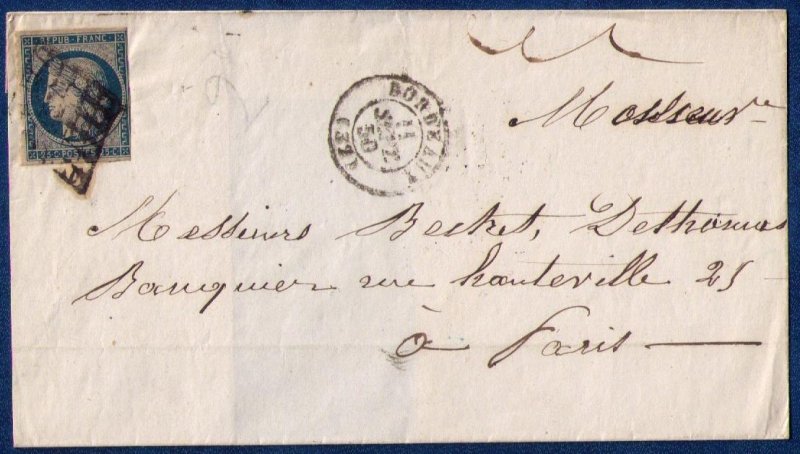 REPUB. FRANC.
25 C. POSTES 25 C.
BORDEAUX
11
50
(32)
Messieurs Becket, Dethomas
Banquier rue hauteville 25
à Paris